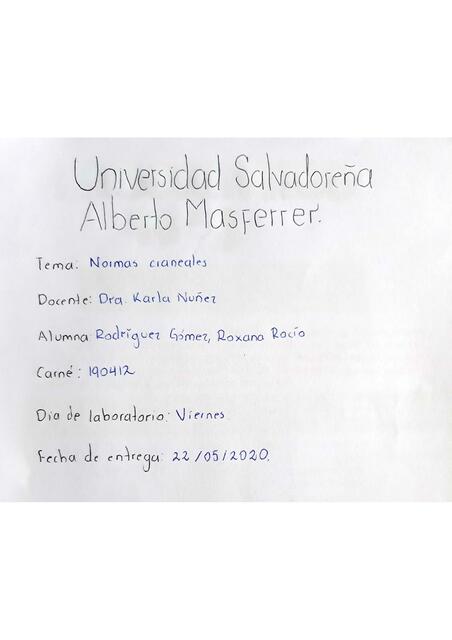 Universidad Salvadoreña
Alberto Masferrer.
Tema: Normas craneales
Docente: Dra. Karla Nuñez
Alumna Rodríguez Gómez, Roxana Rocío
Carné: 190412
Dia de laboratorio: Viernes
Fecha de entrega: 22/05/2020.